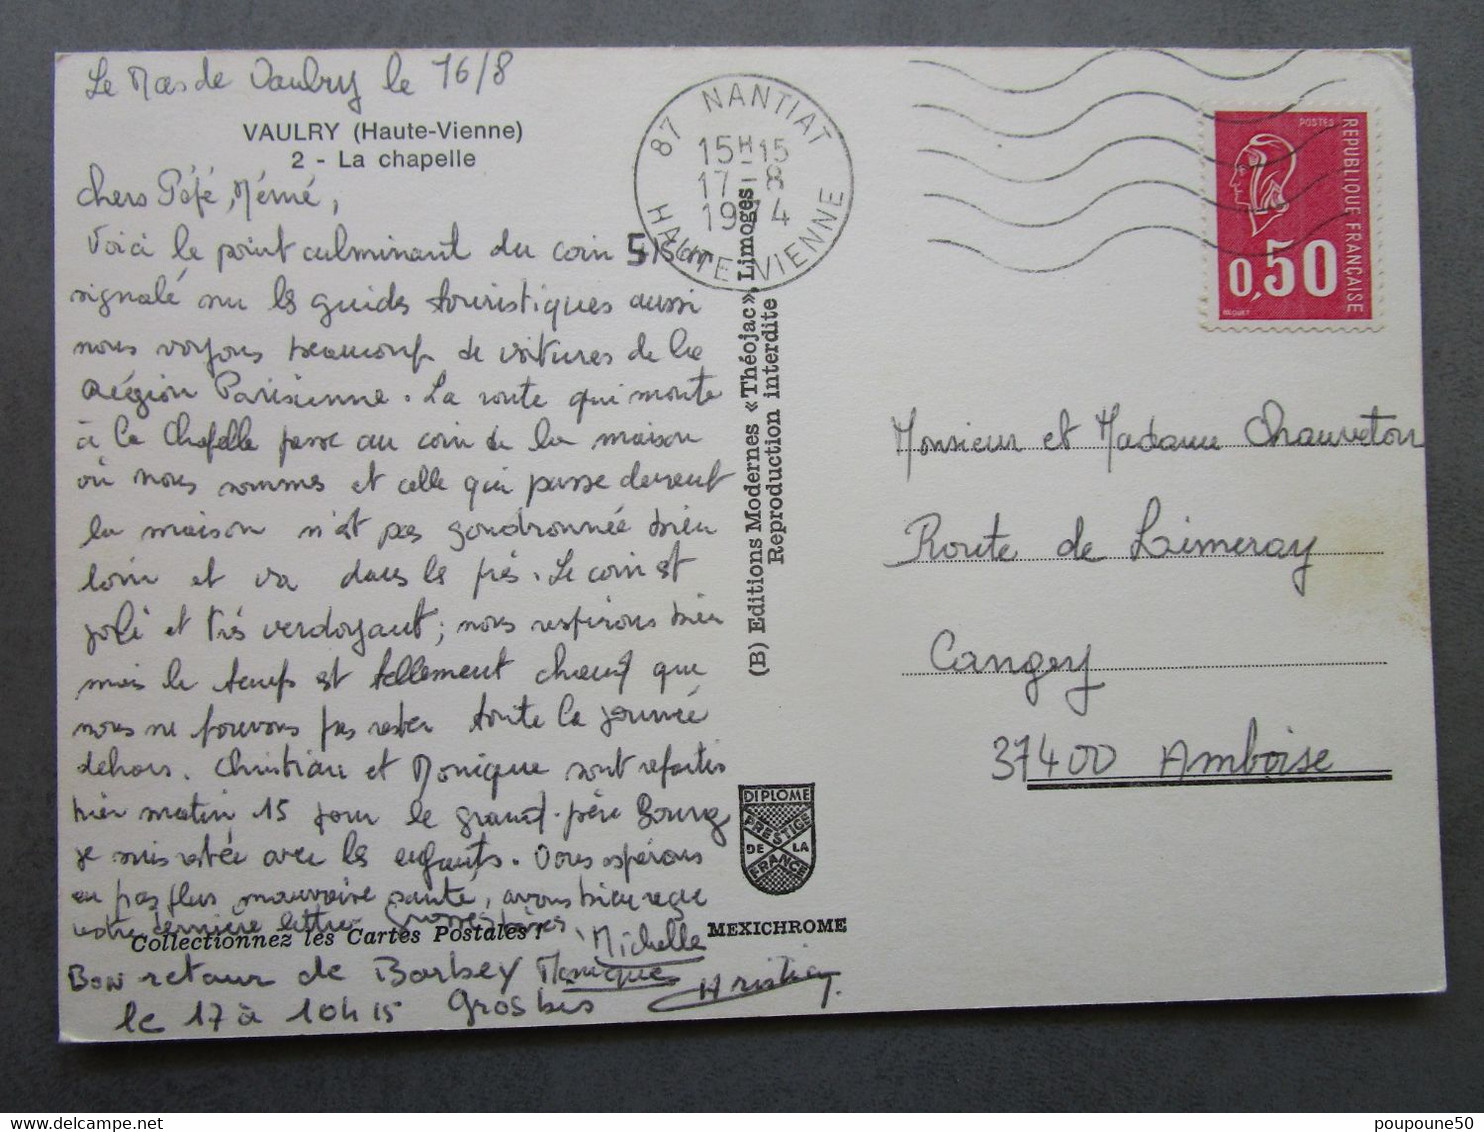 Le Mas de Vaulry le 16/8
VAULRY (Haute-Vienne)
2 - La chapelle
Chers Pépé, Mémé,
Voici le point culminant du coin 515 m
signalé sur les guides touristiques aussi
nous voyons beaucoup de voitures de la
Région Parisienne. La route qui monte
à la Chapelle passe au coin de la maison
où nous sommes et celle qui passe devant
la maison n'est pas goudronnée bien
loin et va dans les prés. Le coin est
joli et très verdoyant; nous respirons bien
mais le temps est tellement chaud que
nous ne pouvons pas rester toute la journée
dehors. Christian et Monique sont repartis
hier matin 15 pour le grand-père Bourg
je suis restée avec les enfants. Vous espérons
en pas plus mauvaise santé, avons bien reçu
votre dernière lettre. Grosses bises
Collectionnez les Cartes Postales!
Michelle
Bon retour de Barbey Monique
le 17 à 10h15 Grosbis Christian
87 NANTIAT
15H15
17-8
1974
HAUTE-VIENNE
(B) Editions Modernes «Théojac», Limoges
Reproduction interdite
DIPLOME
PRESTIGE
DE LA
FRANCE
MEXICHROME
POSTES
REPUBLIQUE FRANÇAISE
0,50
BEQUET
Monsieur et Madame Chauveton
Route de Limeray
Cangey
37400 Amboise
poupoune50